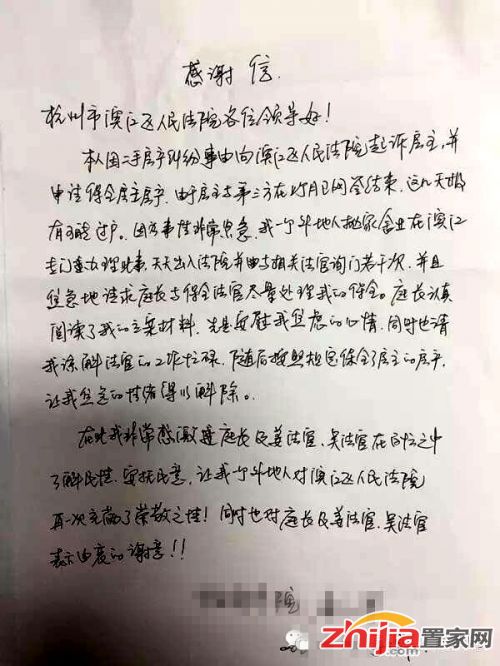 感谢信
杭州市滨江区人民法院各位领导好!
本人因二手房产纠纷事由向滨江区人民法院起诉房主,并
申请保全房主房产。由于房主与第三方在 网签结束,这几天都
有可能过户。因为事情非常紧急,我一个外地人抛家舍业在滨江
专门查办理此事,天天出入法院并由与相关法官询问若干次,并且
焦急地请求庭长与保全法官尽量处理我的保全。庭长认真
阅读了我的立案材料,先是安慰我焦虑的心情,同时也请
我谅解法官的工作忙碌,随后按照规定保全了房主的房产,
让我焦急的情绪得以解除。
在此我非常感激 庭长及姜法官、吴法官在百忙之中
了解民情、安抚民意,让我一个外地人对滨江区人民法院
再一次充满了崇敬之情!同时也对庭长及姜法官、吴法官
表示由衷的谢意!!
zhijia置家网